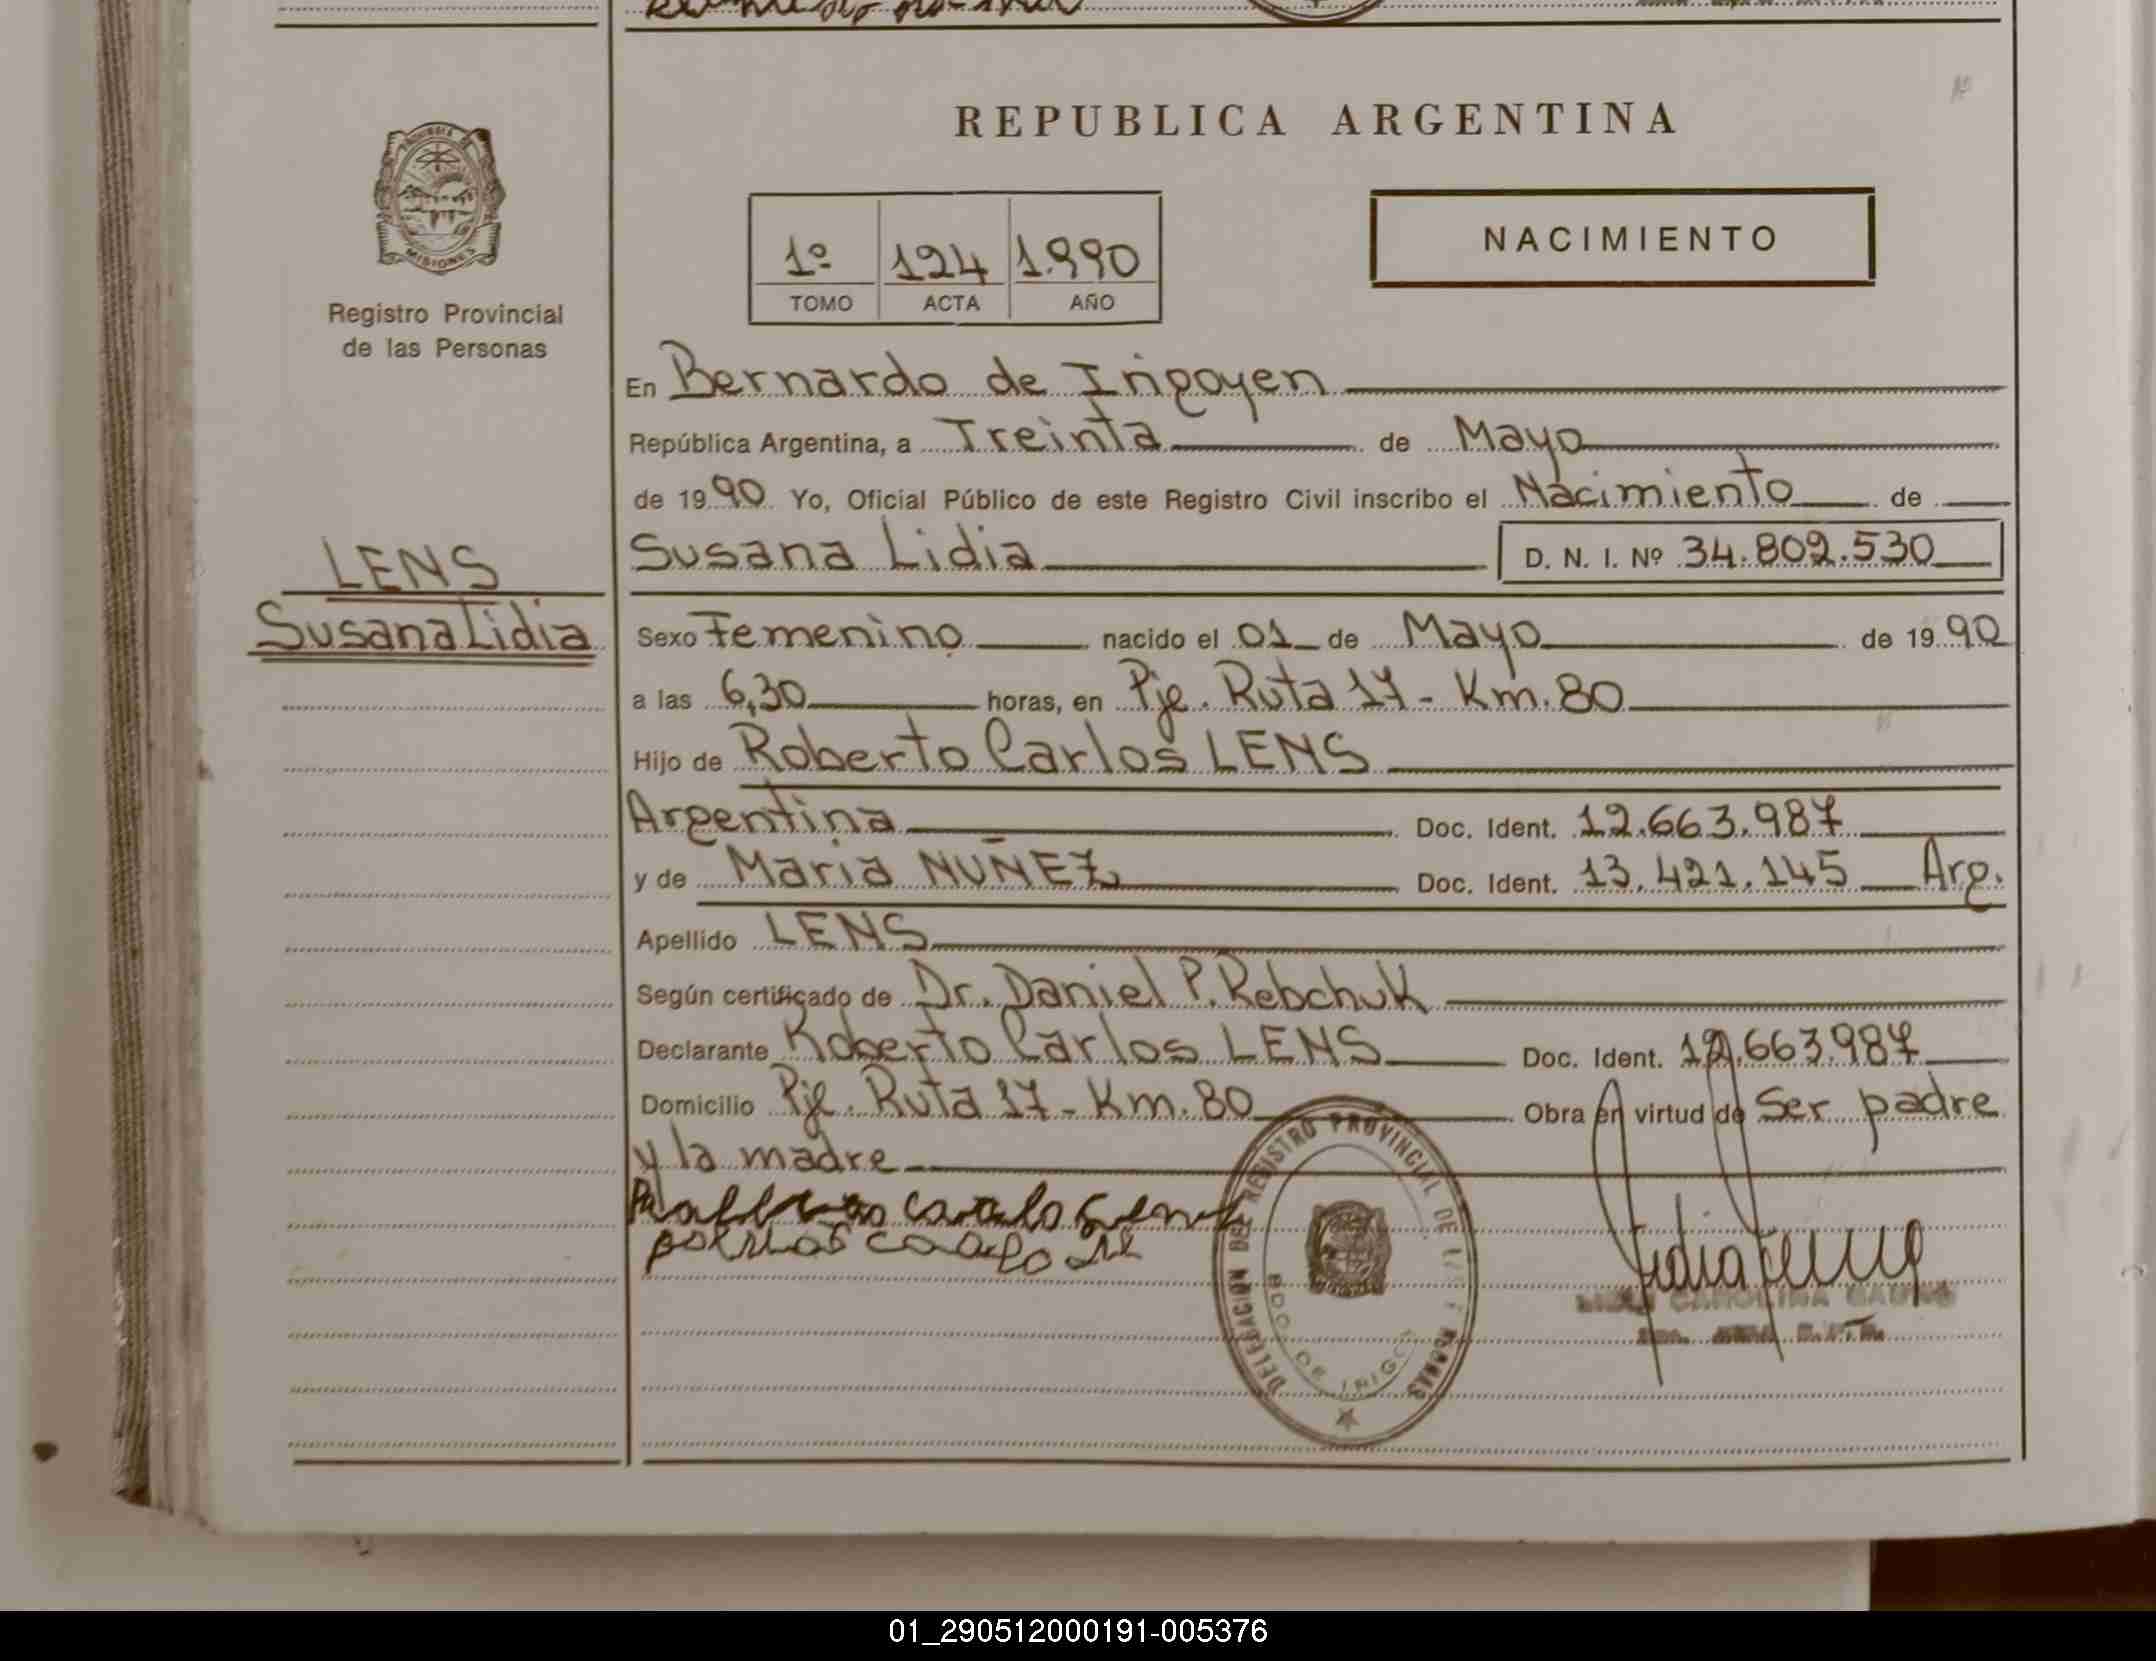 REPUBLICA ARGENTINA
MISIONES
Registro Provincial
de las Personas
1º 124 1.990
TOMO ACTA AÑO
NACIMIENTO
En Bernardo de Irigoyen
República Argentina, a Treinta de Mayo
de 19 90 Yo, Oficial Público de este Registro Civil inscribo el Nacimiento de
LENS
Susana Lidia
Susana Lidia D. N. I. Nº 34.802.530
Sexo Femenino nacido el 01 de Mayo de 19 90
a las 6,30 horas, en Pje. Ruta 17 - Km. 80
Hijo de Roberto Carlos LENS
Argentina Doc. Ident. 12.663.987
y de Maria NUÑEZ Doc. Ident. 13.421.145 Arg.
Apellido LENS
Según certificado de Dr. Daniel P. Rebchuk
Declarante Roberto Carlos LENS Doc. Ident. 12.663.987
Domicilio Pje. Ruta 17 - Km. 80 Obra en virtud de Ser padre
y la madre
DELEGACION DEL REGISTRO PROVINCIAL DE
BDO. DE IRIGO
CAROLINA
01_290512000191-005376